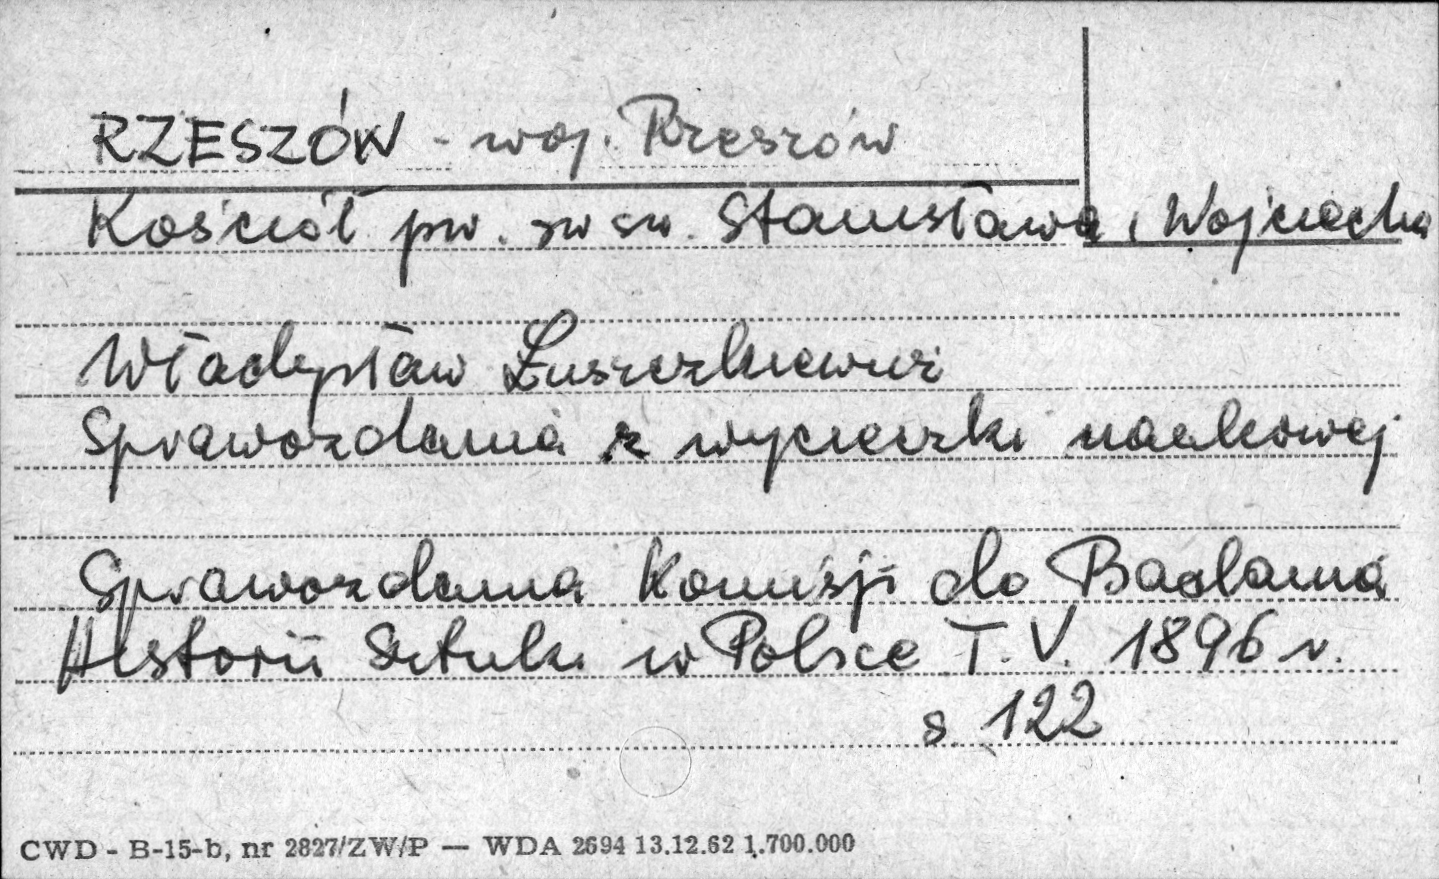 RZESZÓW - woj. Rzeszów
Kościół pw. św św. Stanisława i Wojciecha
Władysław Łuszczkiewicz
Sprawozdania z wycieczki naukowej
Sprawozdania Komisji do Badania
Historii Sztuki w Polsce T. V. 1896 r.
s. 122
CWD - B-15-b, nr 2827/ZW/P — WDA 2694 13.12.62 1.700.000